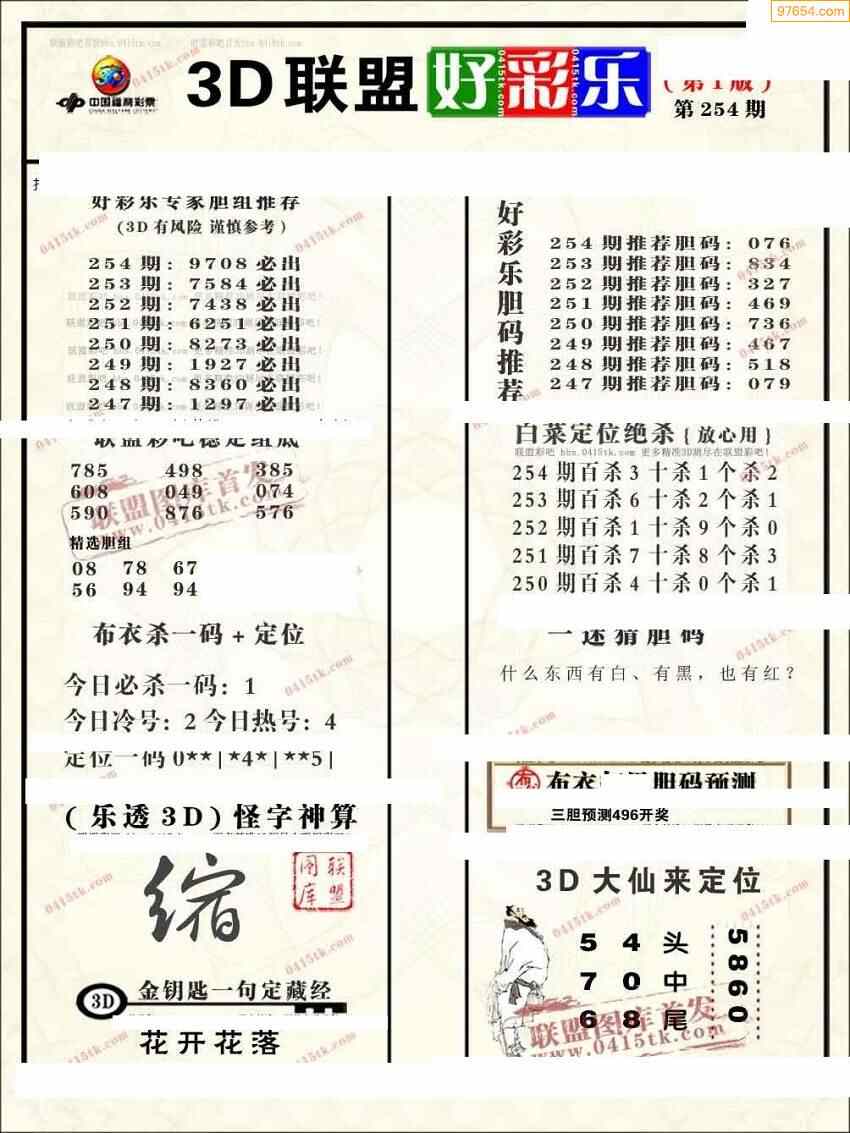 97654.com
3D联盟好彩乐
(第1版)
第254期
中国福利彩票
CHINA WELFARE LOTTERY
好彩乐专家胆组推荐
(3D有风险 谨慎参考)
254期: 9708必出
253期: 7584必出
252期: 7438必出
251期: 6251必出
250期: 8273必出
249期: 1927必出
248期: 8360必出
247期: 1297必出
联盟彩吧稳定组底
785 498 385
608 049 074
590 876 576
精选胆组
08 78 67
56 94 94
布衣杀一码+定位
今日必杀一码: 1
今日冷号: 2 今日热号: 4
定位一码 0**|*4*|**5|
(乐透3D)怪字神算
缩
联盟图库
3D
金钥匙一句定藏经
花开花落
好彩乐胆码推荐
254期推荐胆码: 076
253期推荐胆码: 834
252期推荐胆码: 327
251期推荐胆码: 469
250期推荐胆码: 736
249期推荐胆码: 467
248期推荐胆码: 518
247期推荐胆码: 079
白菜定位绝杀{放心用}
联盟彩吧 bbs.0415tk.com 更多精准3D胆尽在联盟彩吧!
254期百杀3十杀1个杀2
253期百杀6十杀2个杀1
252期百杀1十杀9个杀0
251期百杀7十杀8个杀3
250期百杀4十杀0个杀1
一迷猜胆码
什么东西有白、有黑,也有红?
胆码预测
三胆预测496开奖
3D大仙来定位
5 4 头
7 0 中
6 8 尾
5860
联盟图库首发
www.0415tk.com